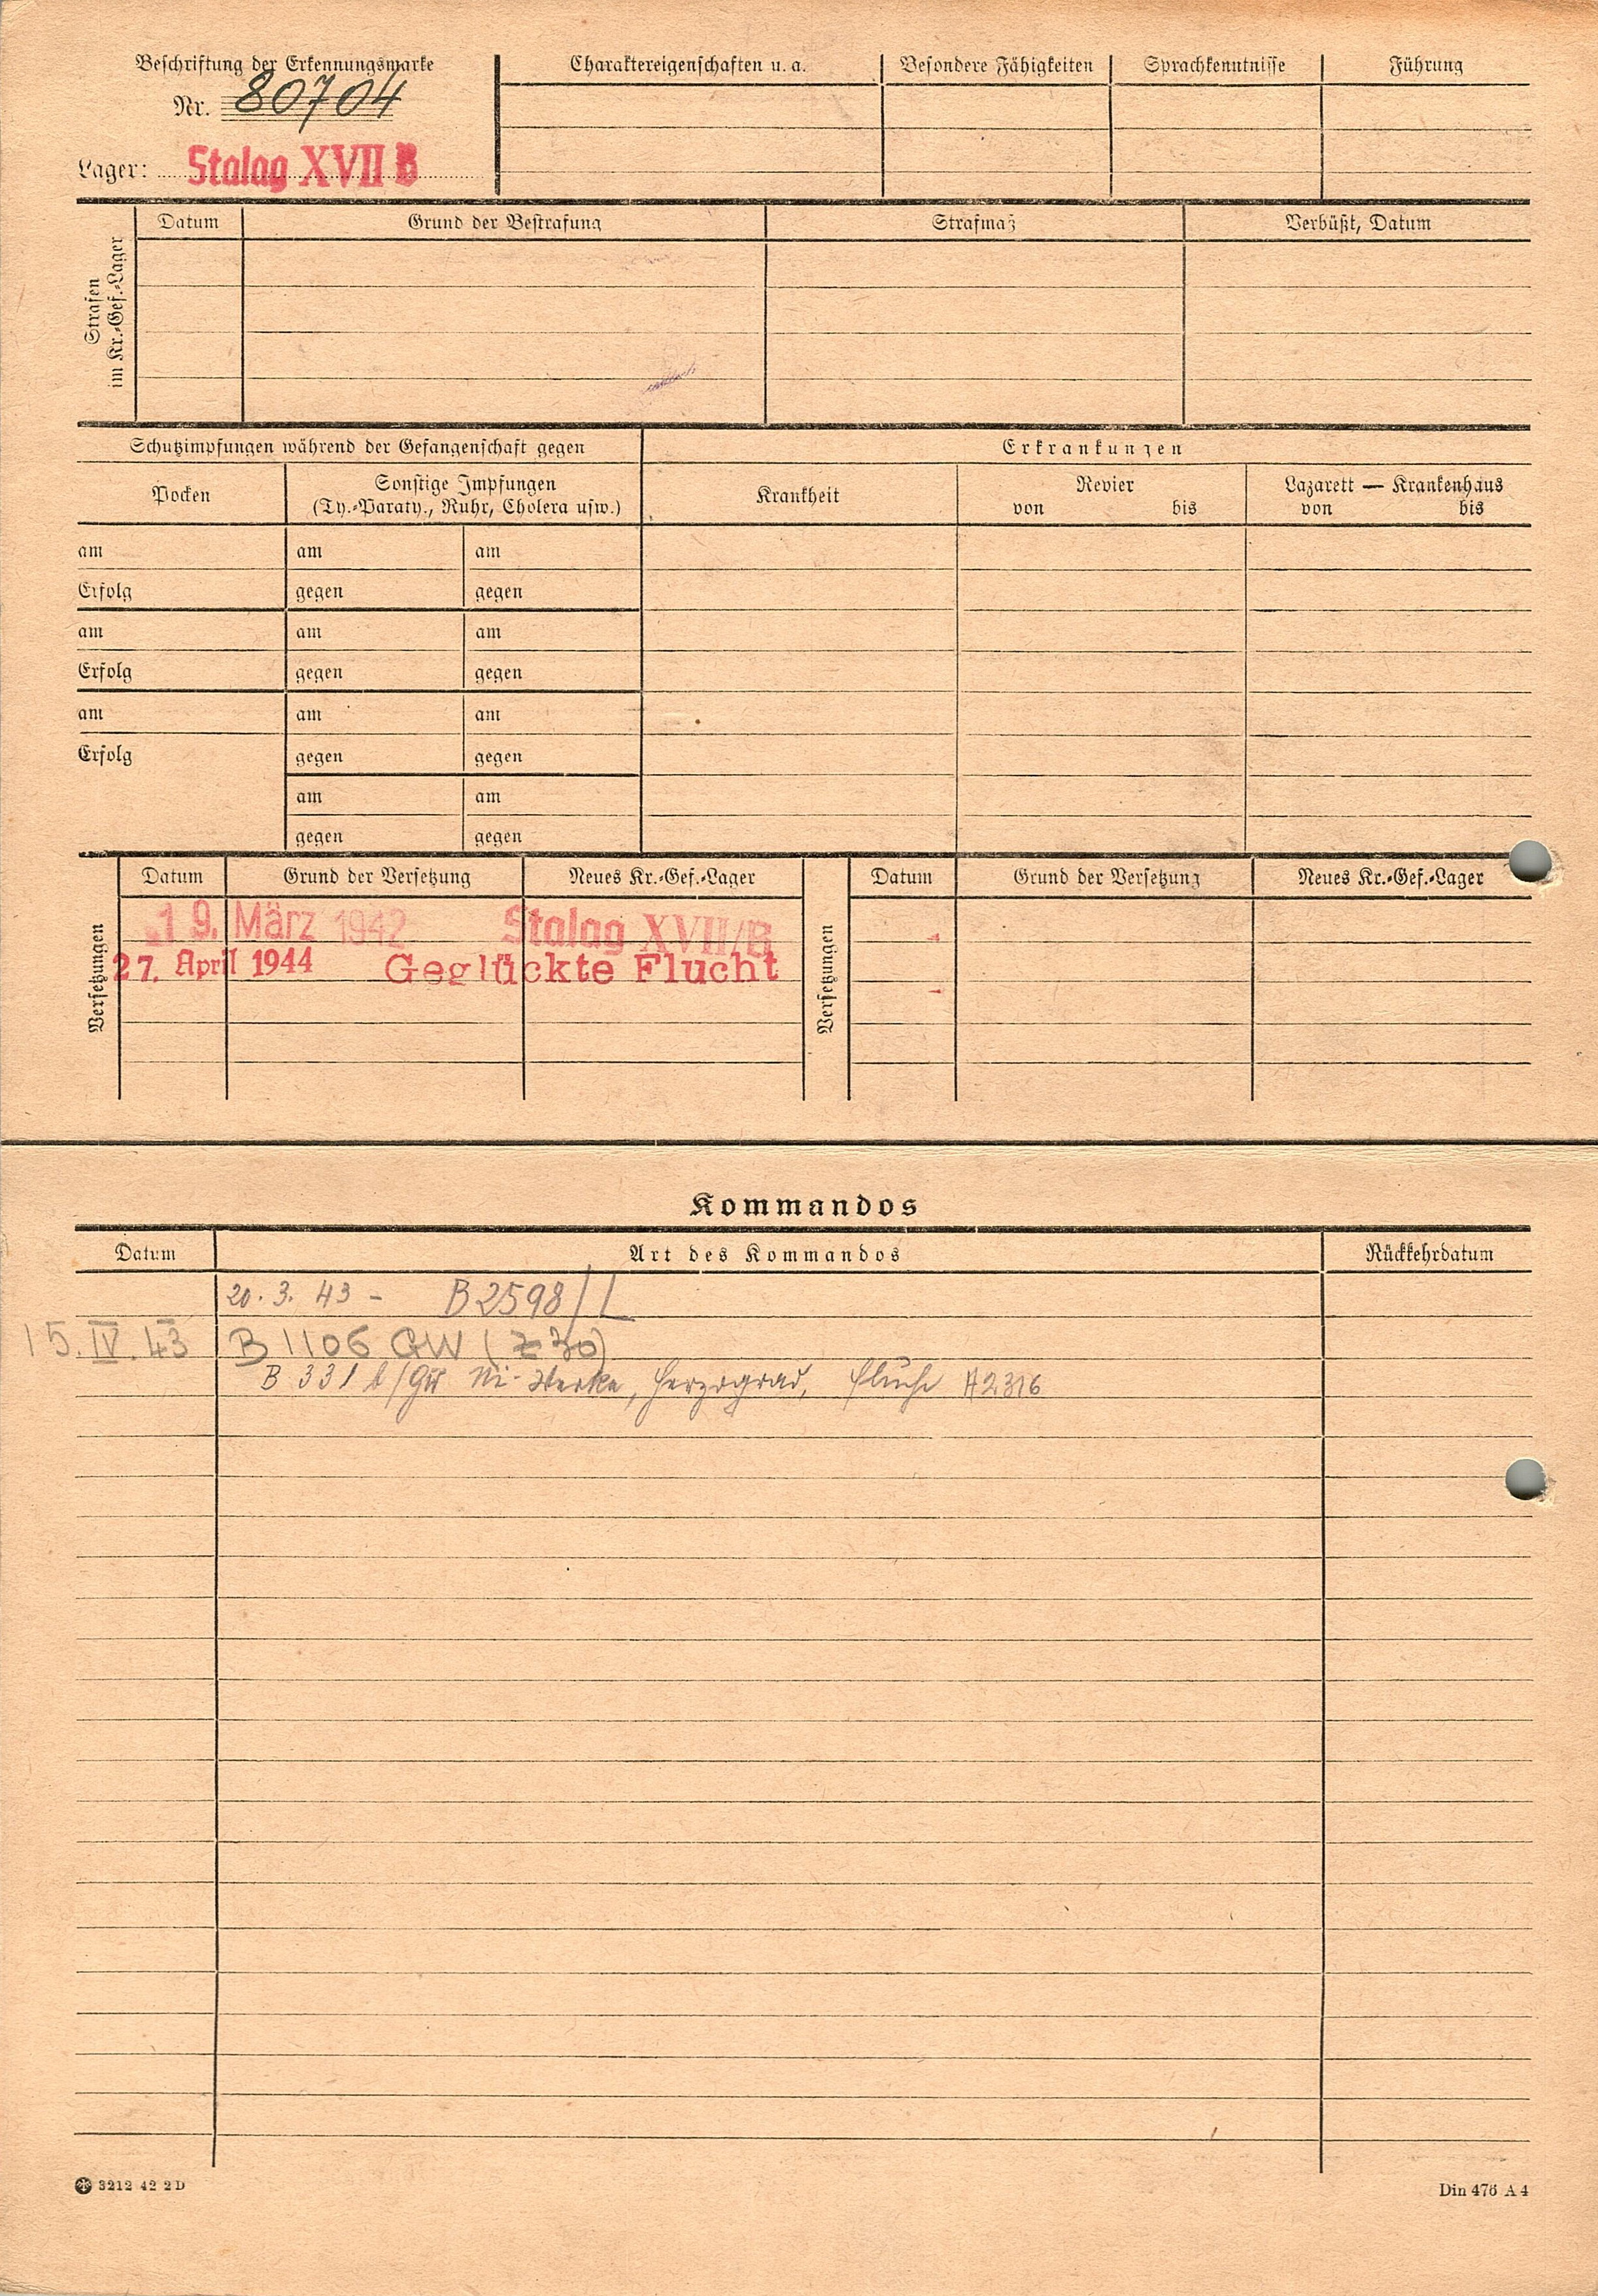 Beschriftung der Erkennungsmarke
Nr. 80704
Lager: Stalag XVII B
Charaktereigenschaften u. a.
Besondere Fähigkeiten
Sprachkenntnisse
Führung
Strafen
im Kr.-Gef.-Lager
Datum
Grund der Bestrafung
Strafmaß
Verbüßt, Datum
Schutzimpfungen während der Gefangenschaft gegen
Erkrankungen
Pocken
Sonstige Impfungen
(Ty.-Paraty., Ruhr, Cholera usw.)
Krankheit
Revier
von bis
Lazarett — Krankenhaus
von bis
am am am
Erfolg gegen gegen
am am am
Erfolg gegen gegen
am am am
Erfolg gegen gegen
am am
gegen gegen
Versetzungen
Datum Grund der Versetzung Neues Kr.-Gef.-Lager
19. März 1942 Stalag XVII/B
27. April 1944 Geglückte Flucht
Versetzungen
Datum Grund der Versetzung Neues Kr.-Gef.-Lager
Kommandos
Datum Art des Kommandos Rückkehrdatum
20. 3. 43 - B 2598/L
15. IV. 43 B 1106 GW (Z 30)
B 331 /GW Ni-Werke, Herzograd, Flucht A2316
3212 42 2 D
Din 476 A 4